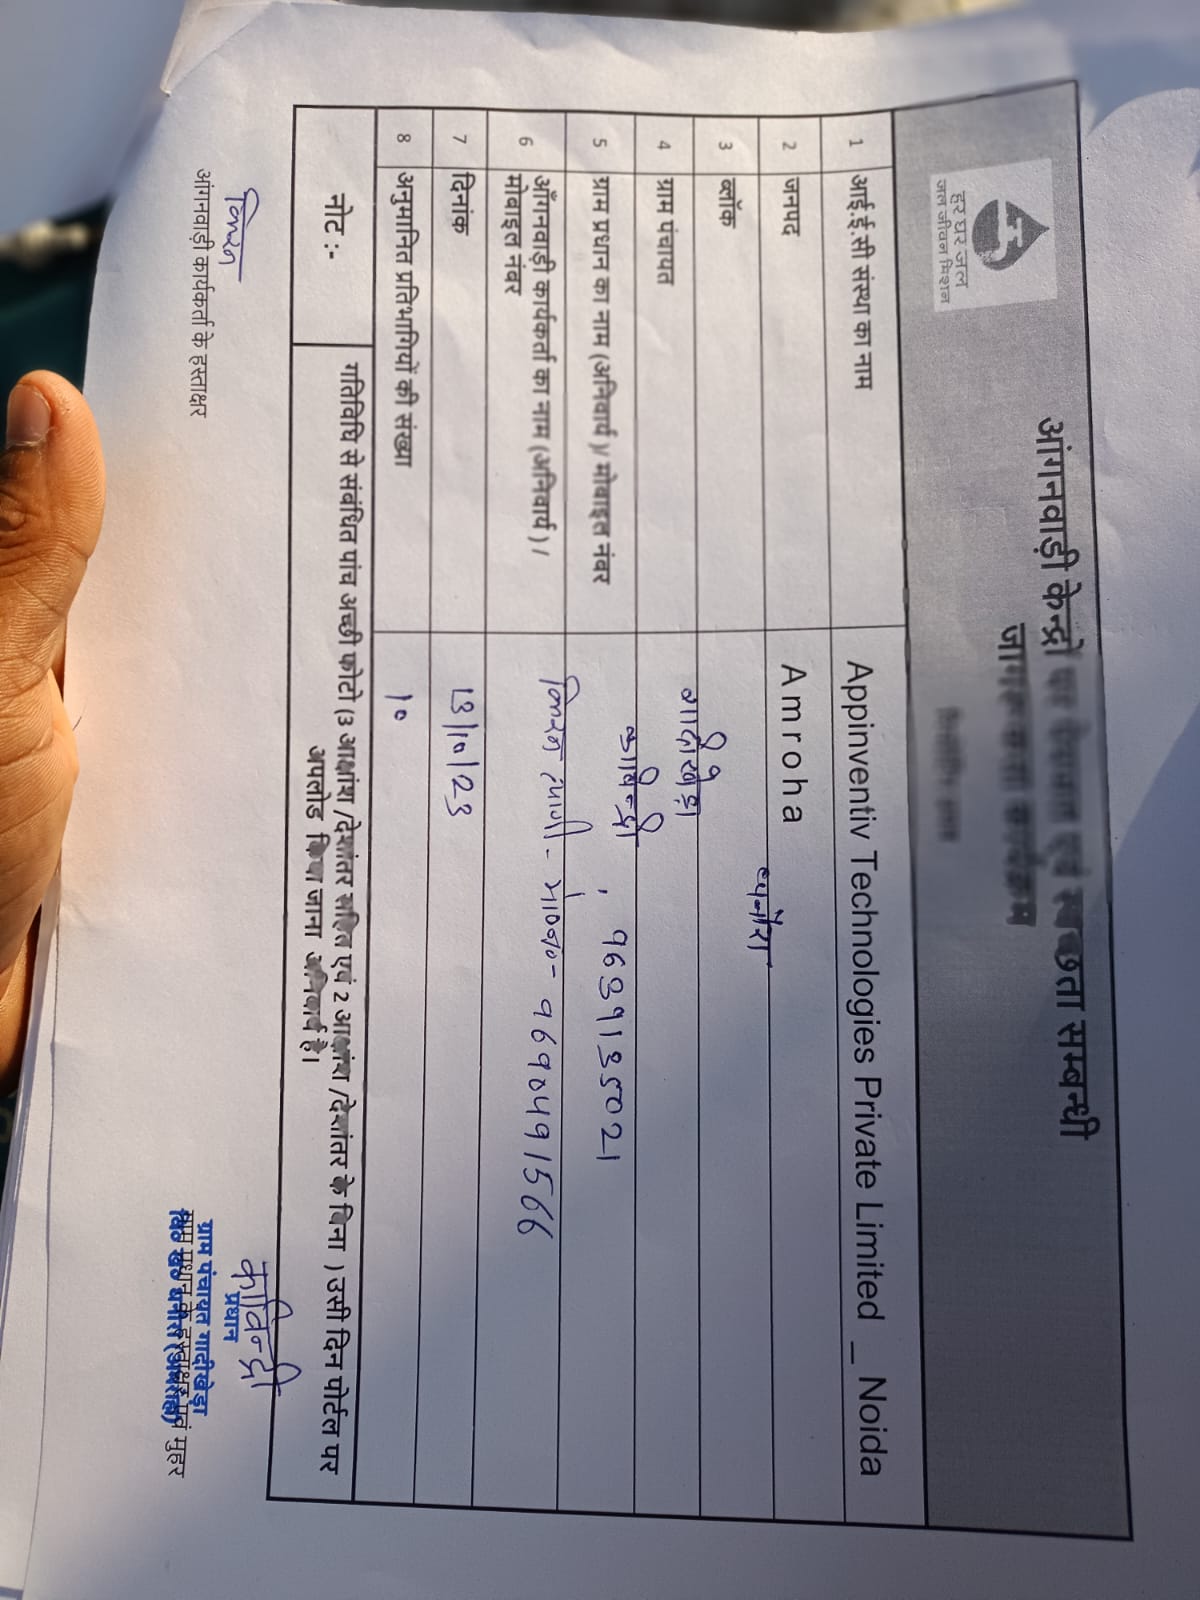 हर घर जल
जल जीवन मिशन
आंगनवाड़ी केन्द्रों पर पेयजल एवं स्वच्छता सम्बन्धी
जागरूकता कार्यक्रम
1 आई.ई.सी संस्था का नाम Appinventiv Technologies Private Limited _ Noida
2 जनपद Amroha
3 ब्लॉक धनौरा
4 ग्राम पंचायत गादीखेड़ा
5 ग्राम प्रधान का नाम (अनिवार्य)/ मोबाइल नंबर काविन्द्री ,
6 आँगनवाड़ी कार्यकर्ता का नाम (अनिवार्य) /
मोबाइल नंबर त्यागी - मो०न०-
7 दिनांक 13/10/23
8 अनुमानित प्रतिभागियों की संख्या १०
नोट :- गतिविधि से संबंधित पांच अच्छी फोटो (3 आक्षांश /देशांतर सहित एवं 2 आक्षांश /देशांतर के बिना ) उसी दिन पोर्टल पर
अपलोड किया जाना अनिवार्य है।
काविन्द्री
आंगनवाड़ी कार्यकर्ता के हस्ताक्षर
प्रधान
ग्राम पंचायत गादीखेड़ा
ग्राम प्रधान के हस्ताक्षर एवं मुहर
वि० ख० धनौरा (अमरोहा)